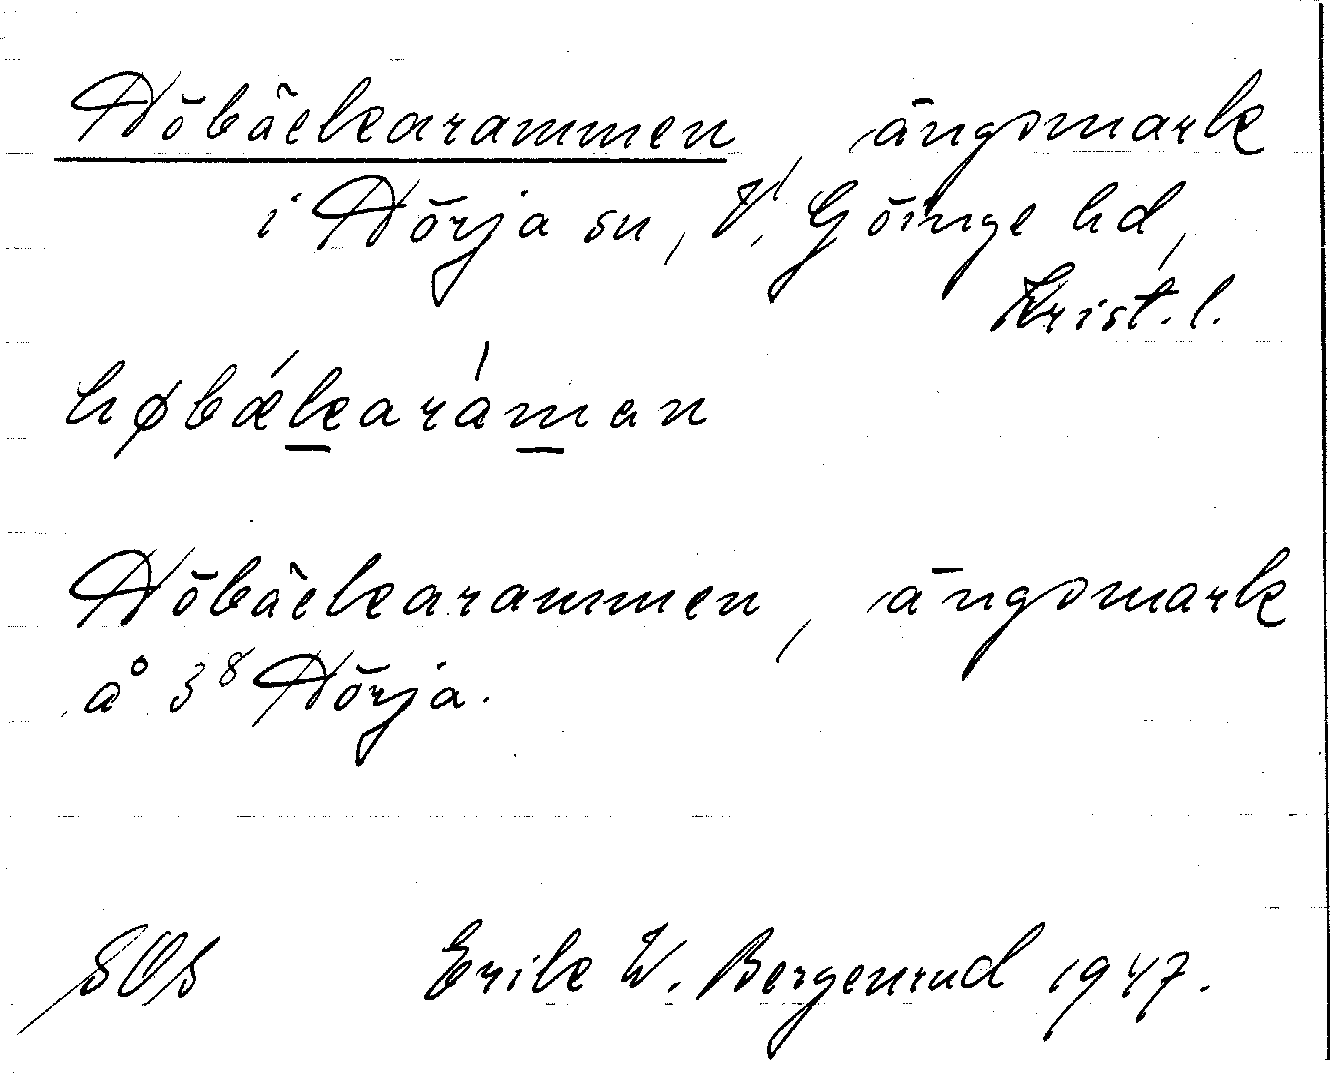 Höbäckarammen, ängsmark
i Hörja sn, V. Göinge hd,
Krist. l.
høbǽkaráman
Höbäckarammen, ängsmark
å 3⁸ Hörja.
SOS Erik W. Bergenrud 1947.